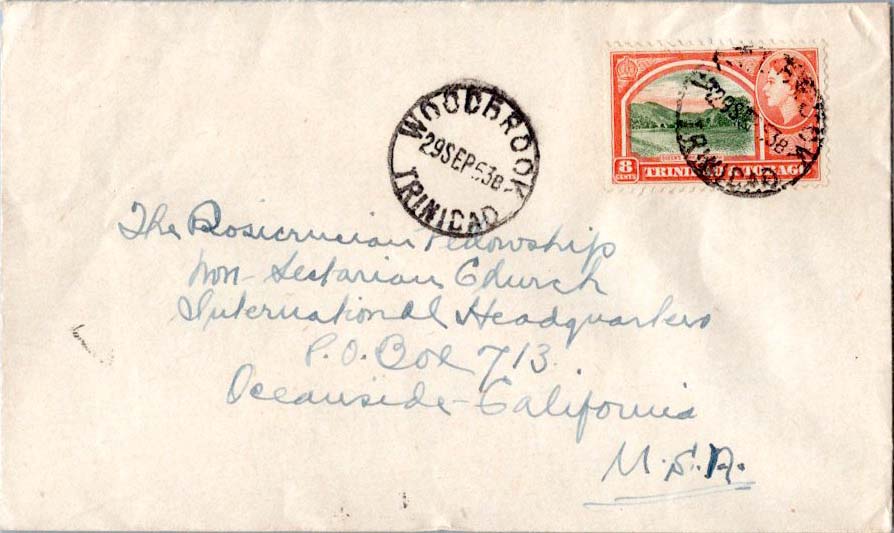 WOODBROOK
29 SEP 53 B
TRINIDAD
WOODBROOK
29 SEP 53 B
TRINIDAD
QUEEN'S
8 CENTS
TRINIDAD & TOBAGO
The Rosicrucian Fellowship
Non-Sectarian Church
International Headquarters
P.O. Box 713
Oceanside-California
U.S.A.